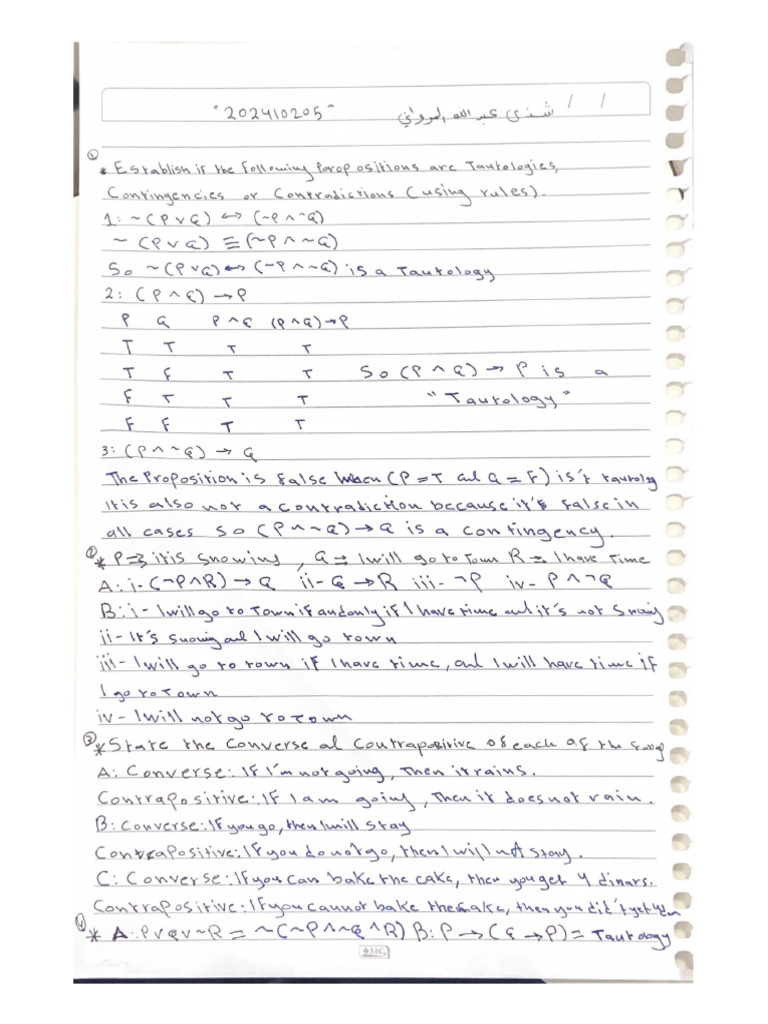 "202410205" شذى عبدالله المرواني / /
①
* Establish if the following Propositions are Tautologies,
Contingencies or Contradictions (using rules).
1: ~(P∨Q) ↔ (~P∧~Q)
~(P∨Q) ≡ (~P∧~Q)
So ~(P∨Q) ↔ (~P∧~Q) is a Tautology
2: (P∧Q) → P
P Q P∧Q (P∧Q)→P
T T T T
T F T T So (P∧Q) → P is a
F T T T "Tautology"
F F T T
3: (P∧~Q) → Q
The Proposition is False When (P=T and Q=F) is't tautoloy
It is also not a contradiction because it's False in
all cases So (P∧~Q)→Q is a contingency.
② * P⇒ it is snowing, Q⇒ I will go to Town R⇒ I have Time
A: i-(¬P∧R)→Q ii- Q→R iii- ¬P iv- P∧¬Q
B: i- I will go to Town if and only if I have time and it's not Snowing
ii- It's snowing and I will go town
iii- I will go to town if I have time, and I will have time if
I go to Town
iv- I will not go to Town
③ * State the Converse and Contrapositive of each of the
A: Converse: If I'm not going, Then it rains.
Contrapositive: If I am going, Then it does not rain.
B: Converse: If you go, then I will stay
Contrapositive: If you do not go, then I will not stay.
C: Converse: If you can bake the cake, then you get 4 dinars.
Contrapositive: If you cannot bake the cake, then you did't get 4
④ * A: P∨Q∨~R = ~(~P∧~Q∧R) B: P→(Q→P) = Tautology